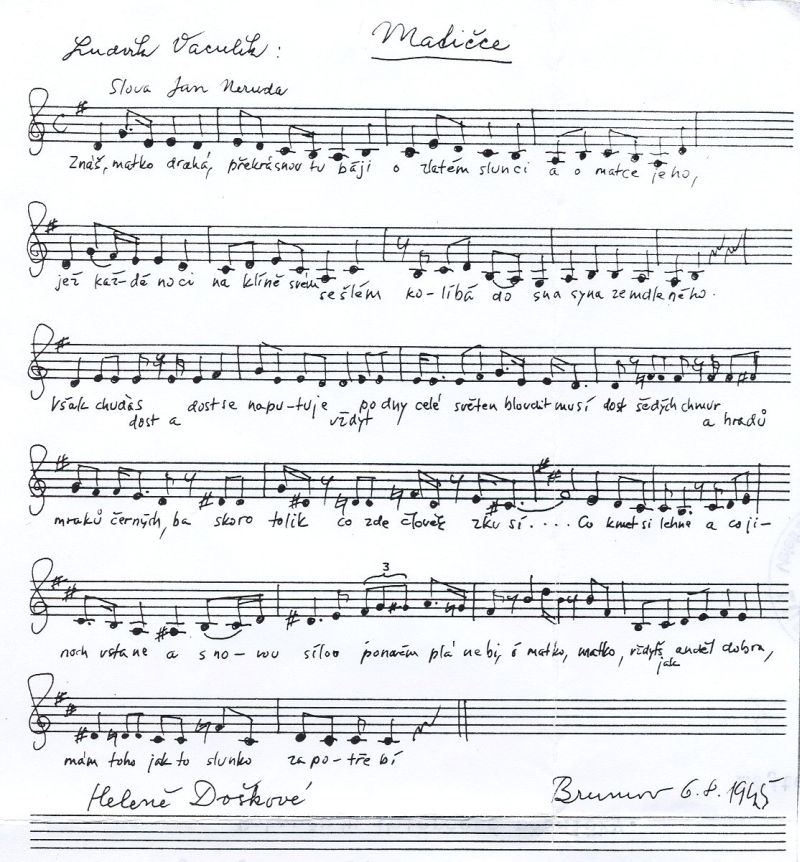 Ludvík Vaculík :
Matičce
Slova Jan Neruda
Znáš, matko drahá, překrásnou tu báji o zlatém slunci a o matce jeho,
jež kaž-dé noci na klíně svém sešlém ko-líbá do sna syna zemdleného.
Však chudás dost a dost se naputuje vždyt po dny celé světem bloudit musí dost šedých chmur a hradů
mraků černých, ba skoro tolik co zde člověk zkusí.... Co kmet si lehne a co ji-
noch vstane a s no-vou sílou ponovém plá nebi, ó matko, matko, vždyťs jak anděl dobra,
mám toho jak to slunko zapo-tře bí
3
Heleně Doškové
Brumov 6.8.1945